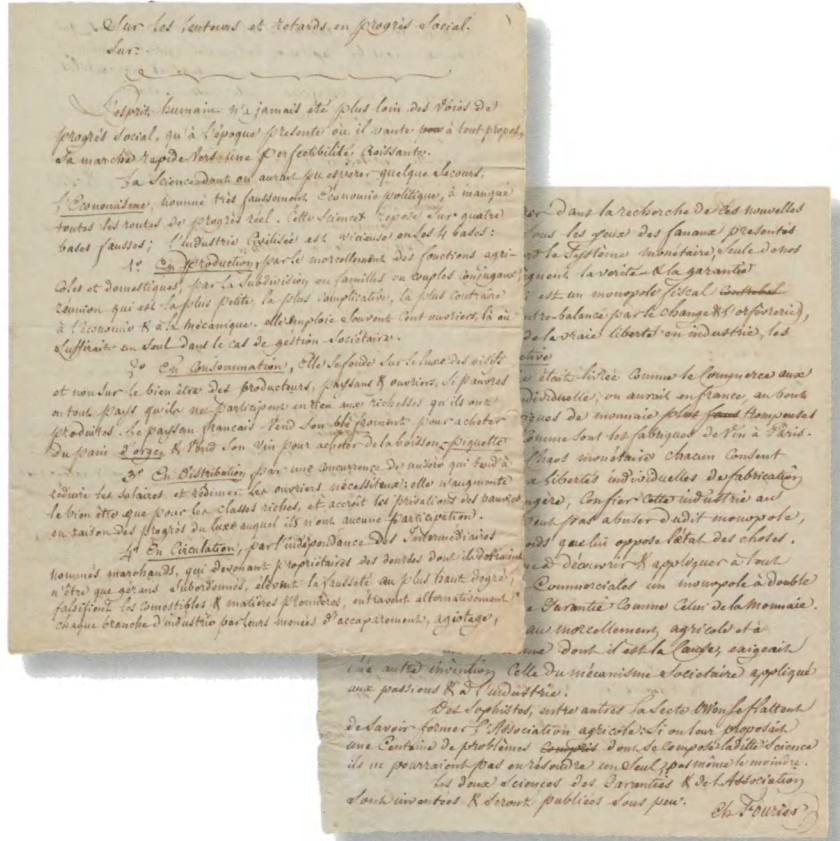 Sur les lenteurs et retards en progrès Social.
Sur:
L'esprit humain n'a jamais été plus loin des Voies de
progrès social, qu'à l'époque présente où il vante à tout propos
Sa marche rapide Vers une perfectibilité Croissante.
La Science dont on aurait pu espérer quelque Secours,
l'Economisme, nommé très faussement Economie politique, à manqué
toutes les routes de progrès réel. Cette Science repose Sur quatre
bases fausses; l'industrie Civilisée est vicieuse en les 4 bases:
1º En Production, par le morcellement des fonctions agri-
coles et domestiques, par la Subdivision en familles ou couples conjugaux
réunion qui est la plus petite, la plus complication, la plus contraire
à l'économie & à la mécanique. elle emploie Souvent Cent ouvriers, là où
Suffirait un Seul dans le cas de gestion Sociétaire.
2º En Consommation, Elle Se fonde Sur le luxe des oisifs
et non Sur le bien être des producteurs, paysans & ouvriers, Si pauvres
en tout pays qu'ils ne participent en rien aux richesses qu'ils ont
produites. Le paysan français Vend Son blé froment pour acheter
du pain d'orge, & Vend Son vin pour acheter de la boisson-piquette
3º En Distribution, par une concurrence de qui tend à
réduire les Salaires et rédimer Les ouvriers nécessiteux; elle n'augmente
le bien être que pour les classes riches, et accroît les privations des pauvres
en raison des progrès du luxe auquel ils n'ont aucune participation.
4º En Circulation, par l'indépendance des Intermédiaires
nommés marchands, qui devenant propriétaires des denrées dont ils devraient
n'être que gérans Subordonnés, élèvent la fausseté au plus haut degré,
falsifient les comestibles & matières premières, entravent alternativement
chaque branche d'industrie par leurs menées d'accaparement, agiotage,
dans la recherche de Ces nouvelles
Sous les yeux des fanaux présentés
le Système monétaire, Seule de nos
la vérité & la garantie
est un monopole fiscal contrebal
par le change & l'orfèvrerie),
de la vraie liberté en industrie, les
était livrée Comme le Commerce aux
on aurait en france, au bout
de monnaie plus faus trompeuses
Comme Sont les fabriques de Vin à Paris.
monétaire chacun Consent
libertés individuelles de fabrication
Confier Cette industrie au
peut pas abuser dudit monopole,
que lui oppose l'état des choses.
à découvrir & appliquer à tout
Commerciales un monopole à double
Garantie Comme Celui de la Monnaie.
au morcellement agricole et à
dont il est la Cause, exigeait
une autre invention Celle du mécanisme Sociétaire appliqué
aux passions & à l'industrie.
Des Sophistes, entre autres la Secte Owen se flattent
de Savoir former l'Association agricole: Si on leur proposait
une Centaine de problèmes Compris dont Se Compose la dite Science
ils ne pourraient pas en résoudre un Seul, pas même le moindre.
Les deux Sciences des Garanties & de l'Association
Sont inventées & Seront publiées Sous peu.
Ch Fourier